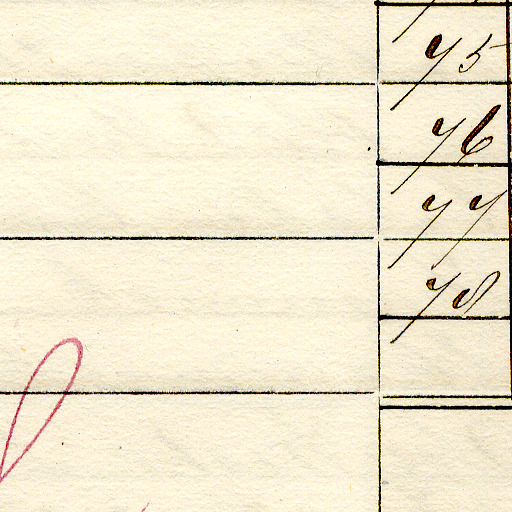 75
76
77
78